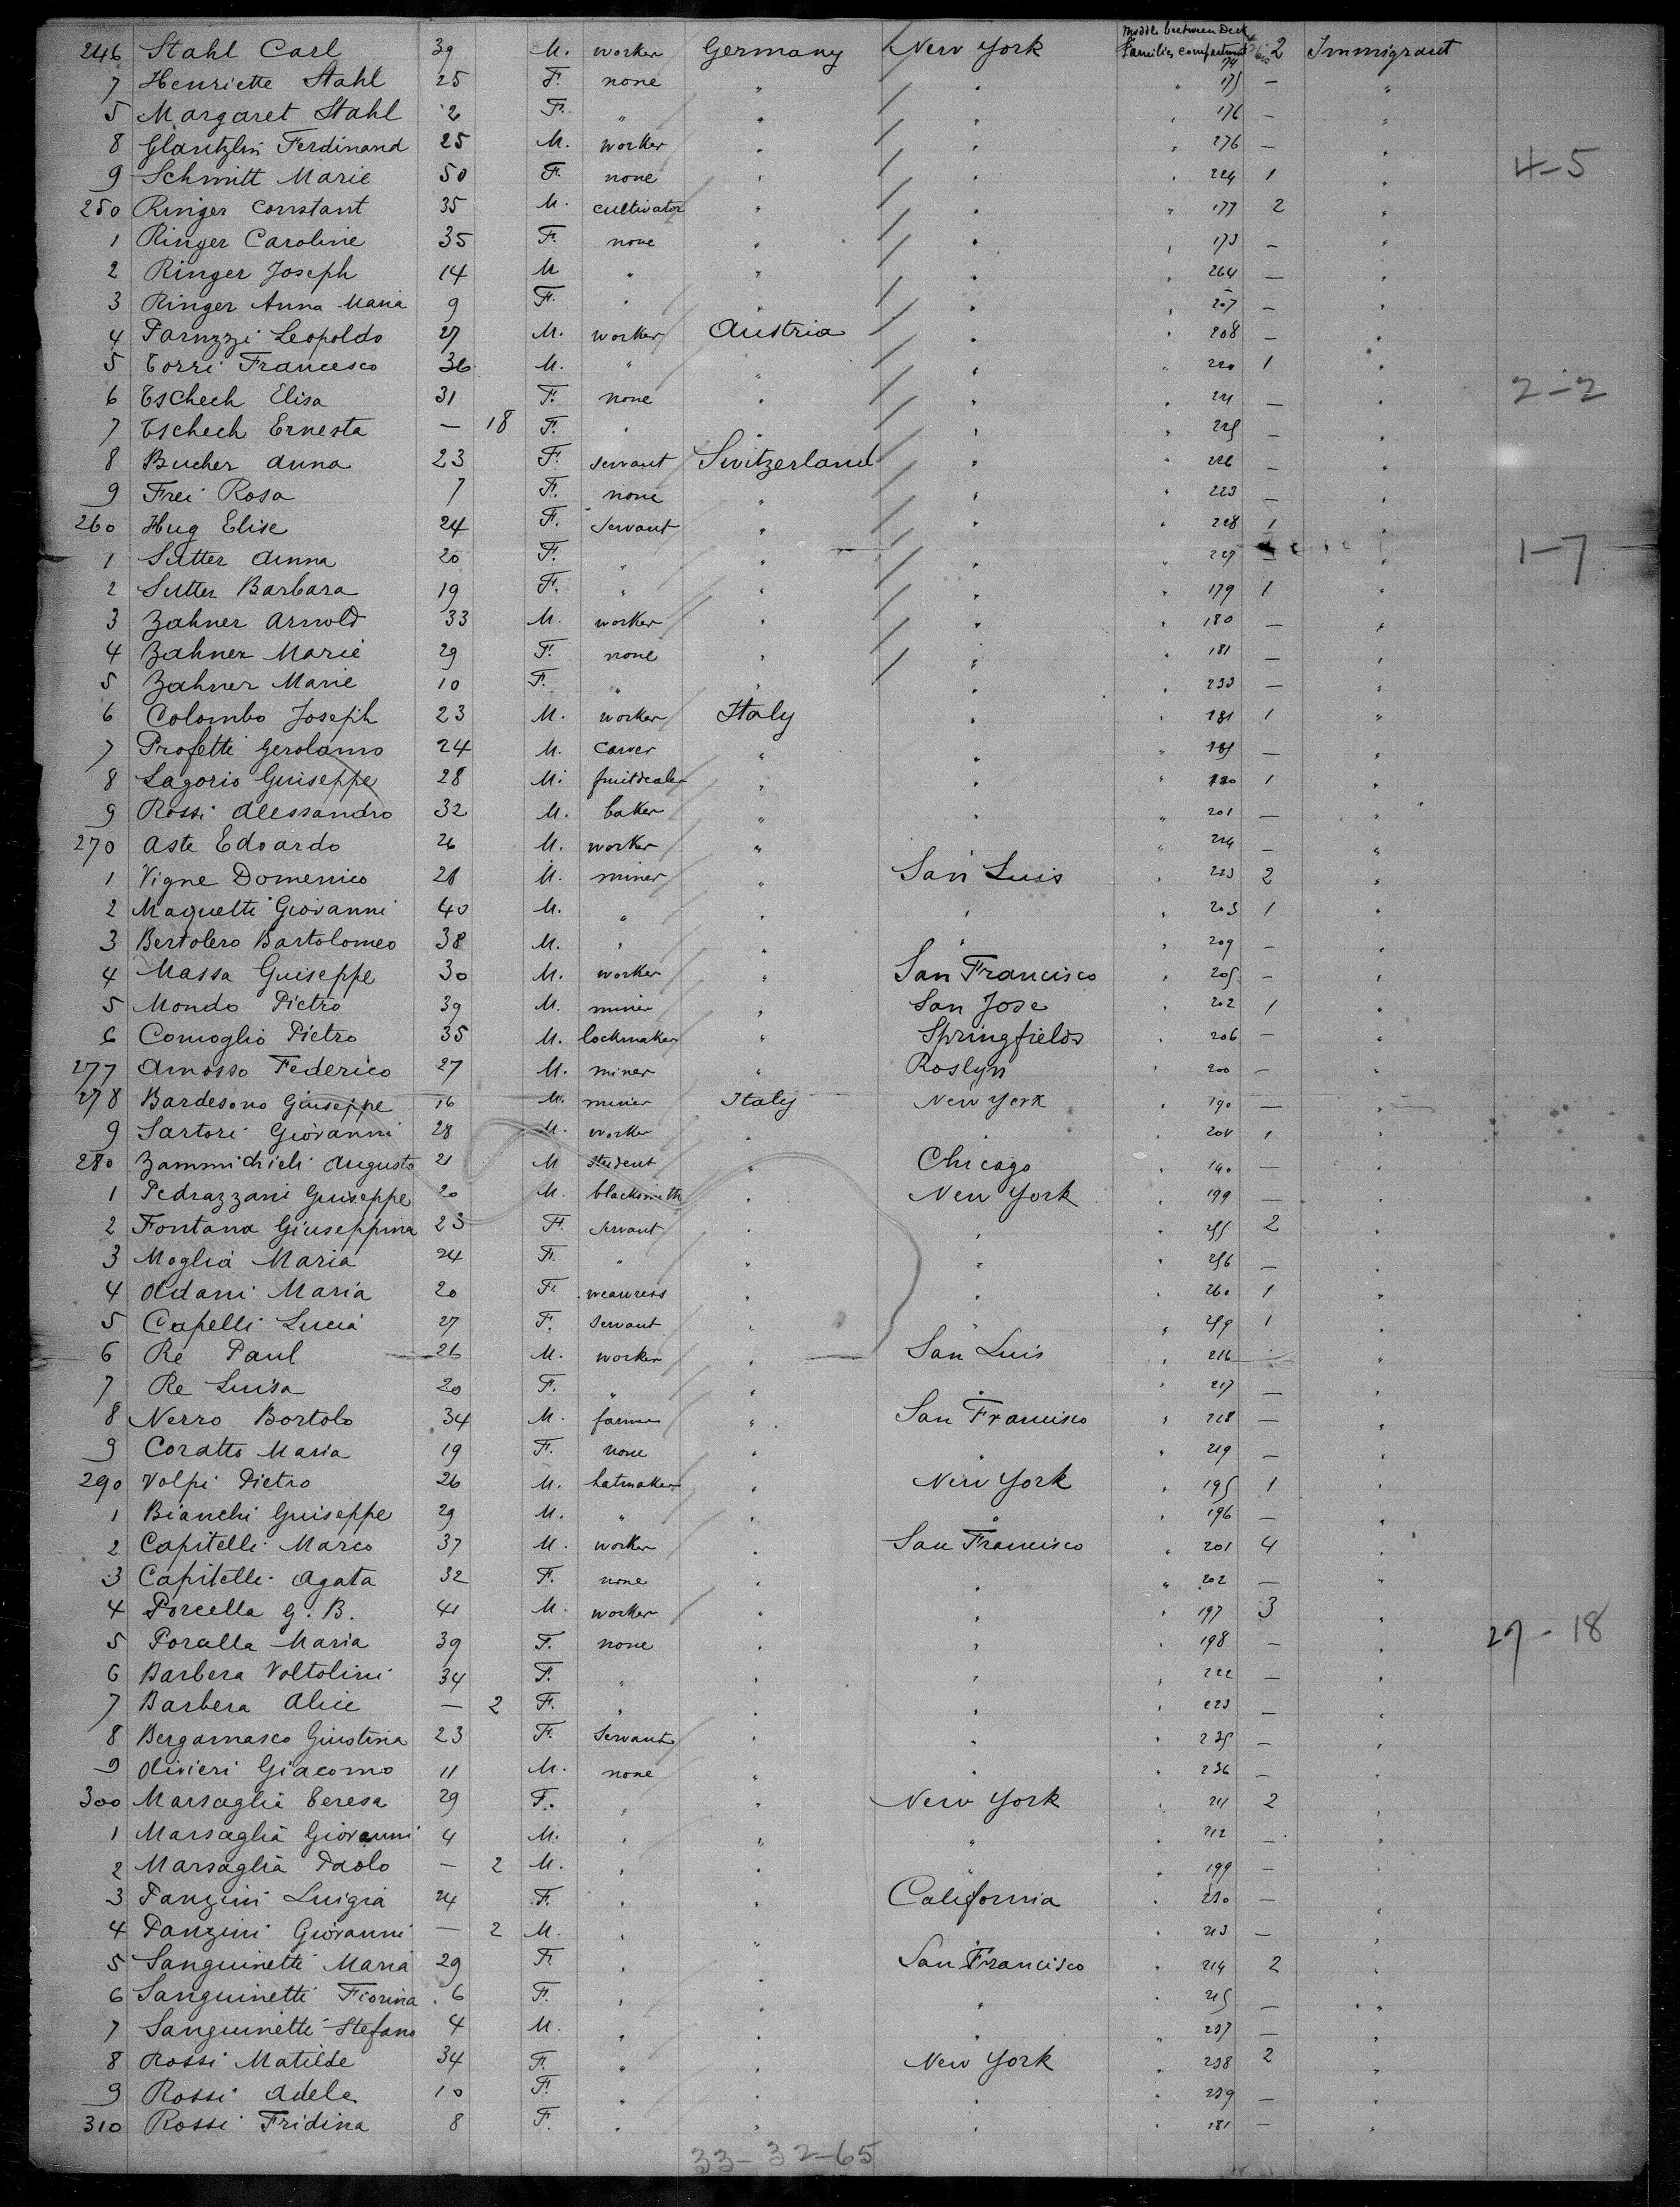 Middle beetween Deck
246 Stahl Carl 39 M. worker Germany New York Families compartment 2 Immigrant
7 Henriette Stahl 25 F. none " " " 175 — "
5 Margaret Stahl 2 F. " " " " 176 — "
8 Ferdinand 25 M. worker " " " 276 — "
9 Schmitt Marie 50 F. none " " " 224 1 " 4-5
250 Ringer Constant 35 M. cultivator " " " 177 2 "
1 Ringer Caroline 35 F. none " " " 173 — "
2 Ringer Joseph 14 M " " " " 264 — "
3 Ringer Anna Maria 9 F. " " " " 207 — "
4 Leopoldo 27 M. worker Austria " " 208 — "
5 Torri Francesco 36 M. " " " " 220 1 "
6 Tschech Elisa 31 F. none " " " 221 — " 2-2
7 Tschech Ernesta — 18 F. " " " " 225 — "
8 Bucher Anna 23 F. servant Switzerland " " 226 — "
9 Frei Rosa 7 F. none " " " 223 — "
260 Hug Elise 24 F. Servant " " " 228 1 "
1 Sutter Anna 20 F. " " " " 227 — " 1-7
2 Sutter Barbara 19 F. " " " " 179 1 "
3 Zahner Arnold 33 M. worker " " " 180 — "
4 Zahner Marie 29 F. none " " " 181 — "
5 Zahner Marie 10 F. " " " " 233 — "
6 Colombo Joseph 23 M. worker Italy " " 181 1 "
7 Profetti Gerolamo 24 M. carver " " " — "
8 Lagorio Guiseppe 28 M. fruitdealer " " " 1 "
9 Rossi Alessandro 32 M. baker " " " 201 — "
270 Aste Edoardo 26 M. worker " " " 224 — "
1 Vigne Domenico 28 M. miner " San Luis " 223 2 "
2 Maquetti Giovanni 40 M. " " " " 203 1 "
3 Bertolero Bartolomeo 38 M. " " " " 209 — "
4 Massa Guiseppe 30 M. worker " San Francisco " 205 — "
5 Mondo Pietro 39 M. miner " San Jose " 202 1 "
6 Comoglio Pietro 35 M. lockmaker " Springfields " 206 — "
277 Amosso Federico 27 M. miner " Roslyn " 200 — "
278 Bardesono Giuseppe 16 M. miner Italy New York " 190 — "
9 Sartori Giovanni 28 M. worker " " " 1 "
280 Zammichieli Augusto 21 M student " Chicago " 190 — "
1 Pedrazzani Guiseppe 20 M. blacksmith " New York " 199 — "
2 Fontana Giuseppina 23 F. Servant " " " 255 2 "
3 Moglia Maria 24 F. " " " " 256 — "
4 Oldani Maria 20 F. weavress " " " 260 1 "
5 Capelli Lucia 27 F. Servant " " " 259 1 "
6 Re Paul 26 M. worker " San Luis " 216 — "
7 Re Luisa 20 F. " " " " 217 — "
8 Nerro Bortolo 34 M. farmer " San Francisco " 218 — "
9 Coratto Maria 19 F. none " " " 219 — "
290 Volpi Pietro 26 M. hatmaker " New York " 195 1 "
1 Bianchi Guiseppe 29 M. " " " " 196 — "
2 Capitelli Marco 37 M. worker " San Francisco " 201 4 "
3 Capitelli Agata 32 F. none " " " 202 — "
4 Porcella G. B. 41 M. worker " " " 197 3 "
5 Poralla Maria 39 F. none " " " 198 — " 29-18
6 Barbera Voltolini 34 F. " " " " 222 — "
7 Barbera Alice — 2 F. " " " " 223 — "
8 Bergamasco Giustina 23 F. Servant " " " 235 — "
9 Olivieri Giacomo 11 M. none " " " 236 — "
300 Marsaglia Teresa 29 F. " " New York " 211 2 "
1 Marsaglia Giovanni 4 M. " " " " 212 — "
2 Marsaglia Paolo — 2 M. " " " " 199 — "
3 Panzini Luigia 24 F. " " California " 210 — "
4 Panzini Giovanni — 2 M. " " " " 213 — "
5 Sanguinetti Maria 29 F. " " San Francisco " 214 2 "
6 Sanguinetti Fiorina 6 F. " " " " 215 — "
7 Sanguinetti Stefano 4 M. " " " " 237 — "
8 Rossi Matilde 34 F. " " New York " 238 2 "
9 Rossi Adele 10 F. " " " " 239 — "
310 Rossi Fridina 8 F. " " " " 181 — "
33-32-65